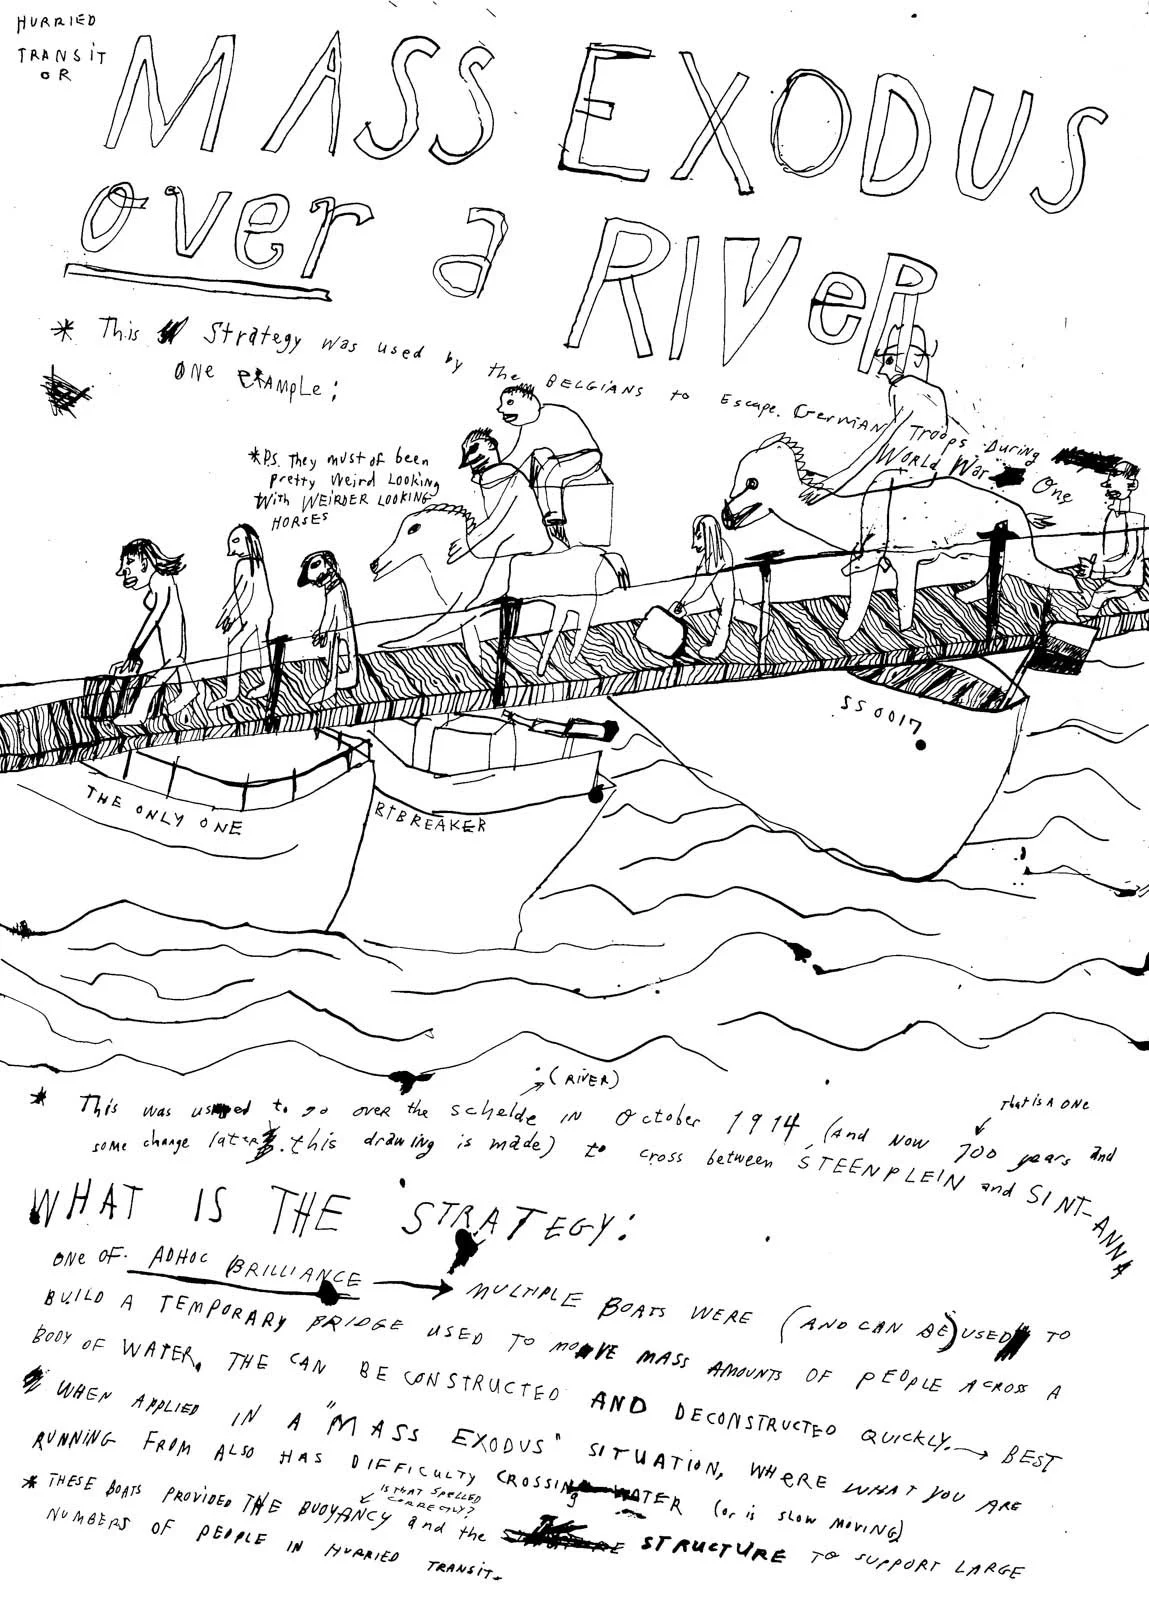 HURRIED
TRANSIT
OR
MASS EXODUS
over a RIVER
* This Strategy was used by the BELGIANS to Escape German Troops During
World War One
ONE EXAMPLE:
*P.S. They must of been
pretty Weird Looking
With WEIRDER LOOKING
HORSES
SS 0017
THE ONLY ONE
BTBREAKER
(RIVER)
* This was used to go over the schelde in October 1914 (and now 100 years and
That is A ONE
some change later this drawing is made) to cross between STEENPLEIN and SINT-ANNA
WHAT IS THE STRATEGY:
ONE OF ADHOC BRILLIANCE → MULTIPLE BOATS WERE (AND CAN BE) USED TO
BUILD A TEMPORARY BRIDGE USED TO MOVE MASS AMOUNTS OF PEOPLE ACROSS A
BODY OF WATER. THE CAN BE CONSTRUCTED AND DECONSTRUCTED QUICKLY. → BEST
WHEN APPLIED IN A "MASS EXODUS" SITUATION, WHERE WHAT YOU ARE
RUNNING FROM ALSO HAS DIFFICULTY CROSSING WATER (or is slow moving)
* THESE BOATS PROVIDED THE BUOYANCY and the STRUCTURE TO SUPPORT LARGE
IS THAT SPELLED
CORRECTLY?
NUMBERS OF PEOPLE IN HURRIED TRANSIT.